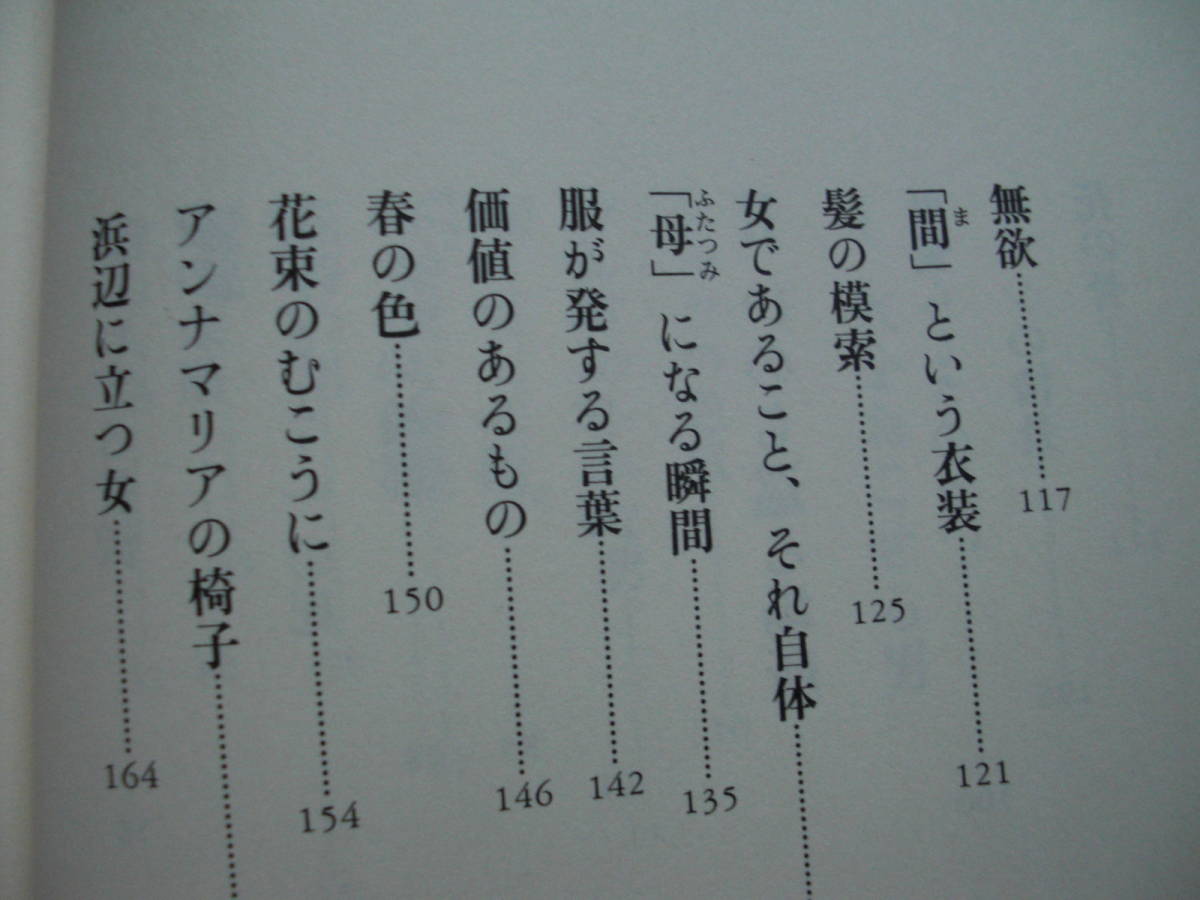 無欲……………117
「間」という衣装……………121
髪の模索……………125
女であること、それ自体……………
「母」になる瞬間……………135
服が発する言葉……………142
価値のあるもの……………146
春の色……………150
花束のむこうに……………154
アンナマリアの椅子……………
浜辺に立つ女……………164
ま
ふたつみ